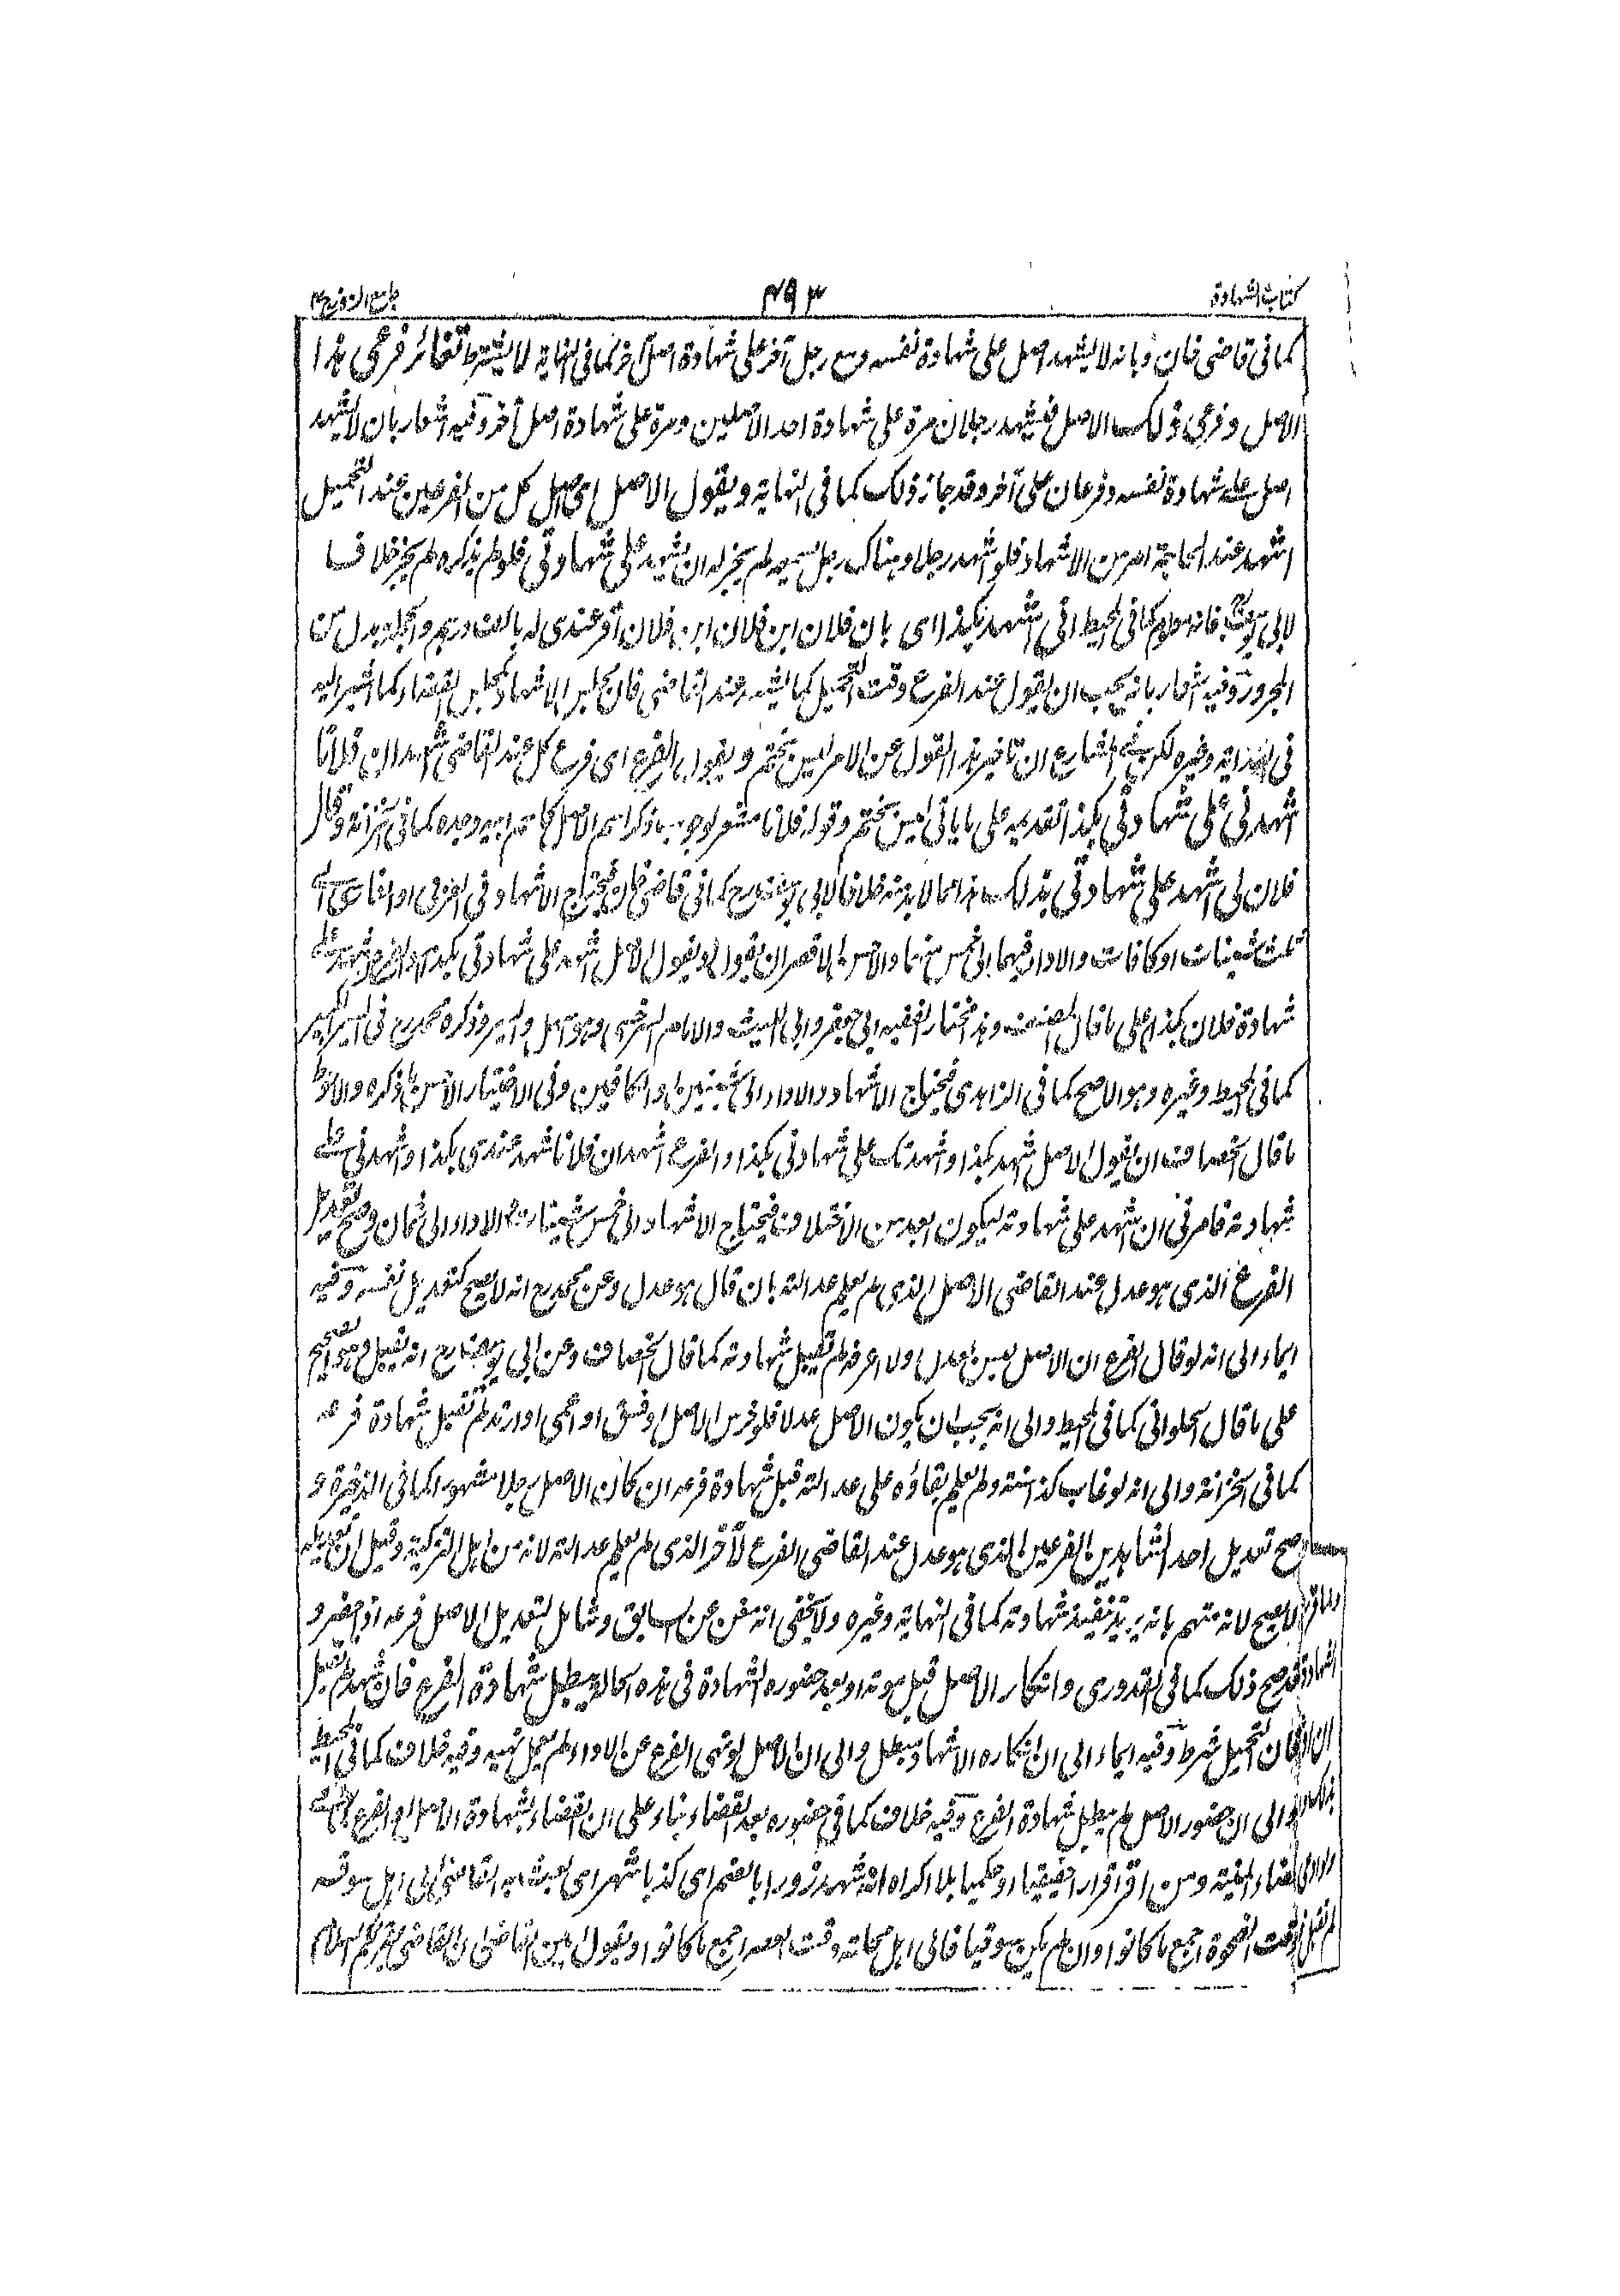 كتاب الشهادة
٤٩٣
جامع الرموز ج٢
كما فى قاضى خان وبانه لا يشهد اصل على شهادة نفسه ومع رجل آخر على شهادة اصل آخر كما فى النهاية لا يشترط تغائر فرعى هذا
الاصل وفرعى ذلك الاصل فيشهد رجلان مرة على شهادة احد الاصلين ومرة على شهادة اصل آخر وفيه اشعار بان لا يشهد
اصل على شهادة نفسه وفرعان على آخر وقد جاز ذلك كما فى النهاية ويقول الاصل اى اصل كل من الفرعين عند التحميل
اشهد عند الحاجة امر من الاشهاد فلو اشهد رجلا وهناك رجل يسمعه لم يجز له ان يشهد على شهادتى فلو لم يذكره لم يجز خلافا
لابى يوسف فانه معلوم كما فى المحيط انى اشهد بكذا اى بان فلان ابن فلان ابن فلان اقر عندى له بالف درهم والجملة بدل من
المجرور وفيه اشعار بانه يجب ان يقول عند الفرع وقت التحميل كما يشهد عند القاضى فان مجلس الاشهاد كمجلس القضاء كما اشير اليه
فى الهداية وغيره لكن فى المشارع ان تاخير هذا القول عن الامر ليس بختم ويقول الفرع اى فرع كل عند القاضى اشهد ان فلانا
اشهدنى على شهادتى بكذا تقديمه على ما ياتى ليس بختم وقوله فلانا مشعر لوجوب ذكر اسم الاصل كاسم ابيه وجده كما فى الخزانة وقال
فلان لى اشهد على شهادتى بذلك هذا مما لا بد منه خلافا لابى يوسف رح كما فى قاضى خان فيحتاج الاشهاد فى العربى او الفارسى الى
ثلث شينات او كافات والاداء فيهما الى خمس منها والاحسن الاقصر ان يقول ويقول الاصل اشهد على شهادتى بكذا والفرع اشهد على
شهادة فلان بكذا على ما قال المصنف وهذا مختار الفقيه ابى جعفر وابى الليث والامام السرخسى وهو اسهل وايسر وذكره محمد رح فى السير الكبير
كما فى المحيط وغيره وهو الاصح كما فى الزاهدى فيحتاج الاشهاد والاداء الى شينين او الكافين وفى الاختيار الاحسن ما ذكره والاحوط
ما قال الخصاف ان يقول الاصل اشهد بكذا واشهدتك على شهادتى بكذا والفرع اشهد ان فلانا شهد عندى بكذا واشهدنى على
شهادته فامرنى ان اشهد على شهادته ليكون ابعد من الاختلاف فيحتاج الاشهاد الى خمس شينات والاداء الى ثمان وصح تعديل
الفرع الذى هو عدل عند القاضى الاصل الذى لم يعلم عدالته بان قال هو عدل وعن محمد رح انه لا يصح كتعديل نفسه وفيه
ايماء الى انه لو قال الفرع ان الاصل ليس بعدل او لا اعرفه لم تقبل شهادته كما قال الخصاف وعن ابى يوسف رح انه تقبل وهو الصحيح
على ما قال الحلوانى كما فى المحيط والى انه يجب ان يكون الاصل عدلا فلو خرس الاصل او فسق او اعمى او ارتد لم تقبل شهادة فرعه
كما فى الخزانة والى انه لو غاب كذا سنة ولم يعلم بقاؤه على عدالته قبل شهادة فرعه ان كان الاصل رجلا مشهورا كما فى الذخيرة و
صح تعديل احد الشاهدين الفرعين الذى هو عدل عند القاضى الفرع الآخر الذى لم يعلم عدالته لانه من اهل التزكية وقيل ان تعديله
لا يصح لانه متهم بانه يريد تنفيذ شهادته كما فى النهاية وغيره ولا يخفى انه مغن عن السابق وشامل لتعديل الاصل فرعه اذ حضر و
قد صح ذلك كما فى القدورى وانكار الاصل قبل موته او بعد حضوره الشهادة فى هذه الحالة يبطل شهادة الفرع فان شهد لم تقبل
فان التحميل شرط وفيه ايماء الى ان انكاره الاشهاد مبطل والى ان الاصل لو نهى الفرع عن الاداء لم يعمل نهيه وفيه خلاف كما فى المحيط
والى ان حضور الاصل لم يبطل شهادة الفرع وفيه خلاف كما فى حضوره بعد القضاء بناء على ان القضاء بشهادة الاصل او الفرع
قضاء المنية ومن اقر اقرارا حقيقيا او حكميا بلا اكراه انه شهد زورا بالضم اى كذبا شهر اى يبعث به القاضى الى اهل سوقه
وقت الضحوة اجمع ما كانوا وان لم يكن سوقيا فالى اهل محلته وقت العصر اجمع ما كانوا ويقول امين القاضى ان القاضى يقرئكم السلام